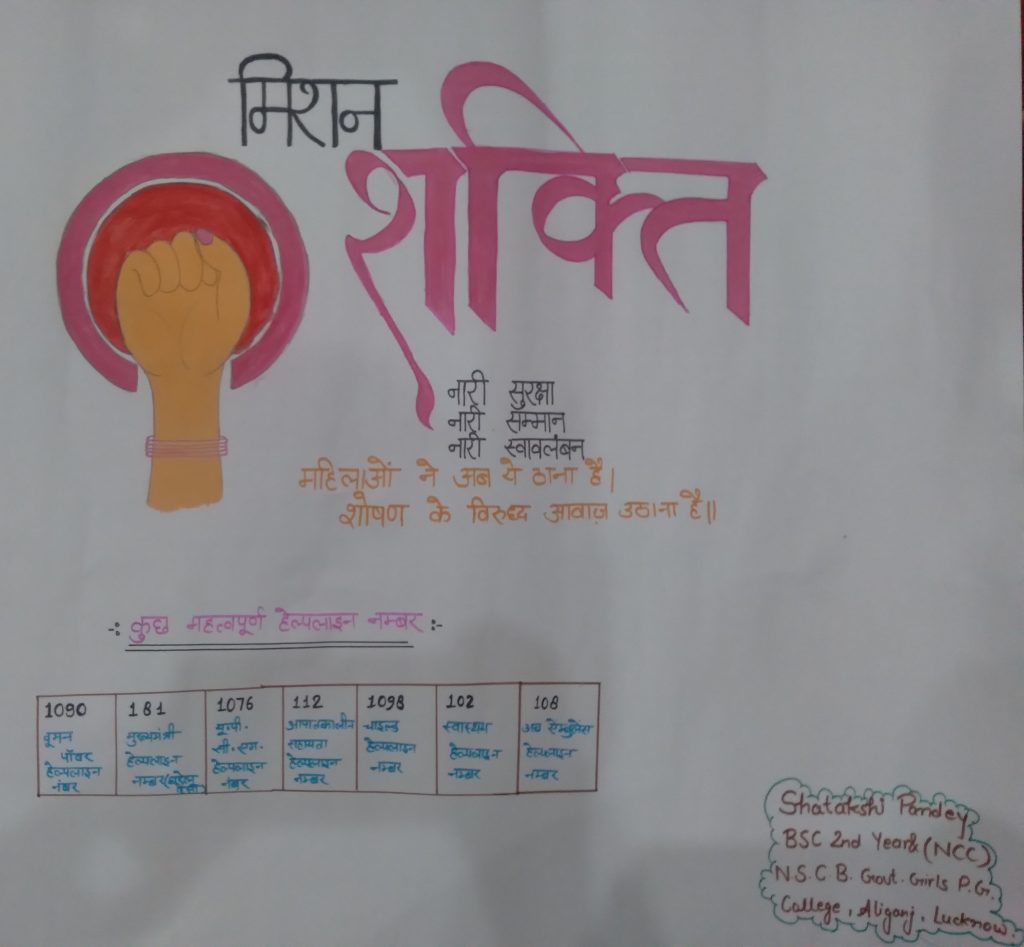 मिशन
शक्ति
नारी सुरक्षा
नारी सम्मान
नारी स्वावलंबन
महिलाओं ने अब ये ठाना है।
शोषण के विरुध्द आवाज़ उठाना है॥
-: कुछ महत्वपूर्ण हेल्पलाइन नम्बर :-
1090
वूमन
पॉवर
हेल्पलाइन
नंबर
181
मुख्यमंत्री
हेल्पलाइन
नम्बर
1076
यू॰पी॰
सी॰एम॰
हेल्पलाइन
नंबर
112
आपातकालीन
सहायता
हेल्पलाइन
नम्बर
1098
चाइल्ड
हेल्पलाइन
नम्बर
102
स्वास्थ्य
हेल्पलाइन
नम्बर
108
हेल्पलाइन
नम्बर
Shatakshi Pandey
BSC 2nd Year& (NCC)
N.S.C.B. Govt. Girls P.G.
College, Aliganj, Lucknow.